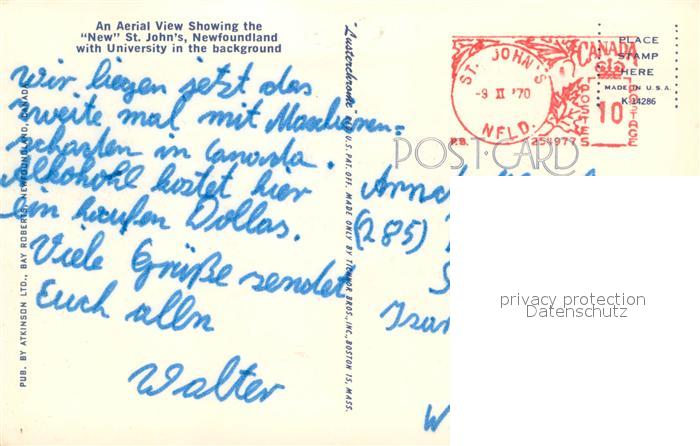 An Aerial View Showing the
"New" St. John's, Newfoundland
with University in the background
Wir liegen jetzt das
zweite mal mit Maschienen=
schaden in Canada.
Alkohohl kostet hier
ein haufen Dollas.
Viele Grüße sendet
Euch allen
Walter
PUB. BY ATKINSON LTD., BAY ROBERTS, NEWFOUNDLAND, CANADA
"Lusterchrome" REG. U.S. PAT. OFF. MADE ONLY BY TICHNOR BROS., INC., BOSTON 15, MASS.
ST. JOHN'S
-9 II '70
NFLD.
CANADA
POSTES
10
POSTAGE
P.B. 254977
PLACE
STAMP
HERE
MADE IN U.S.A.
K-14286
POST CARD
(285)
W
privacy protection
Datenschutz